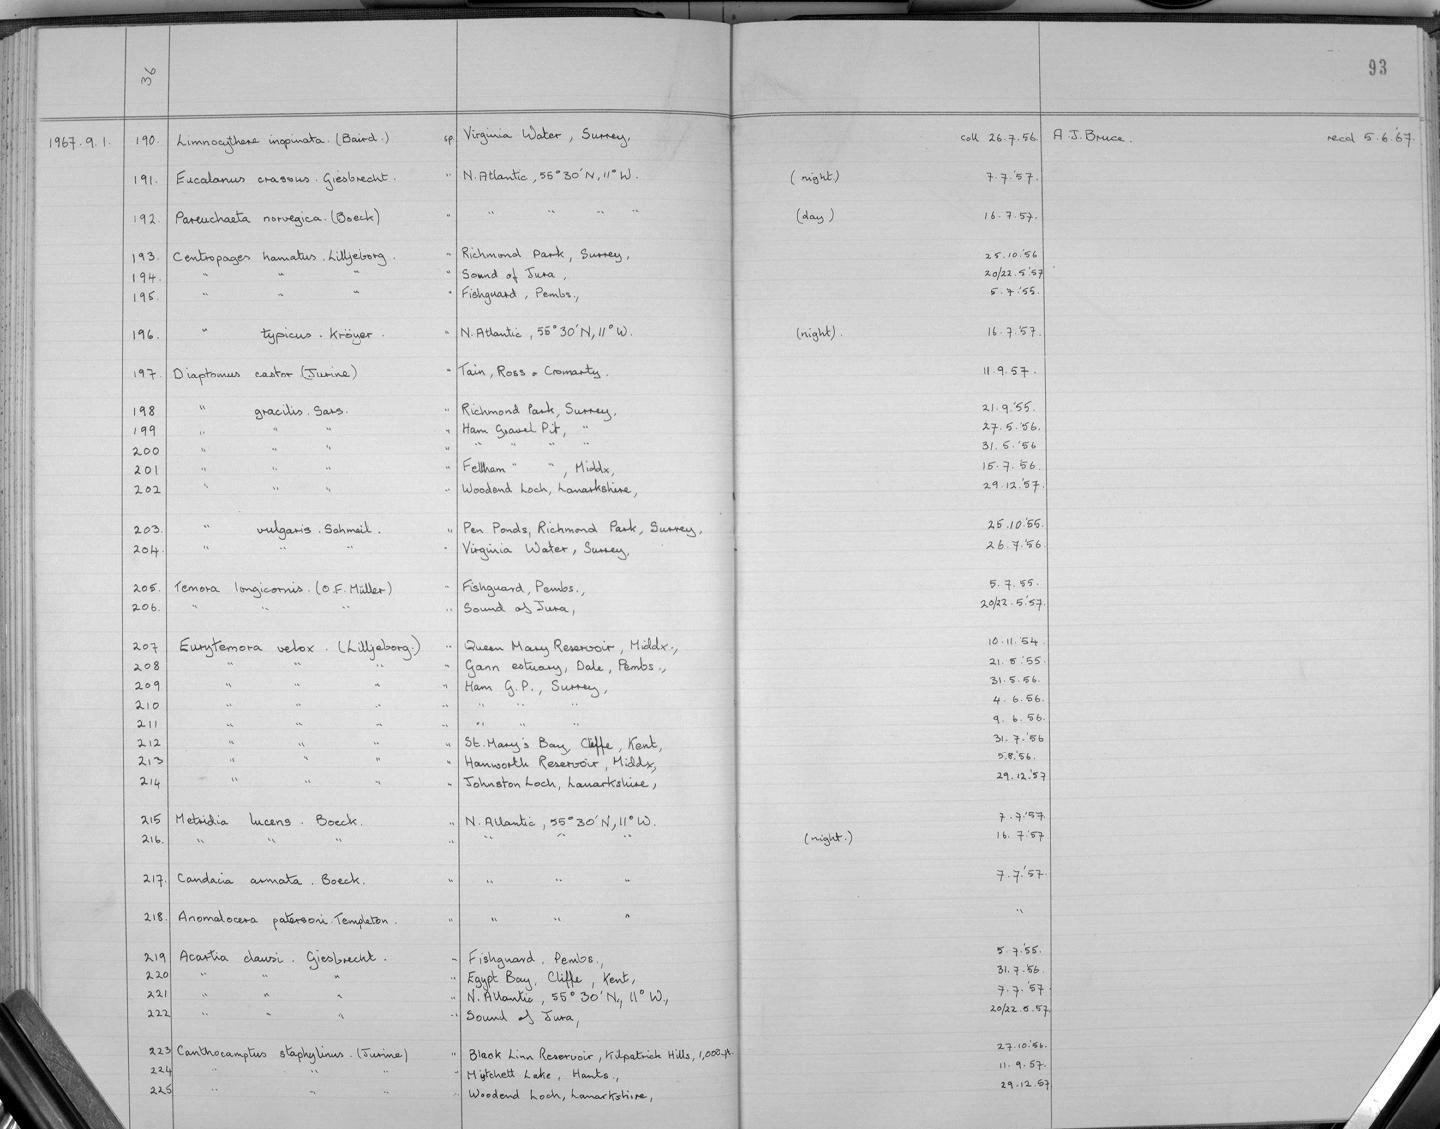 36
93
1967.9.1. 190. Limnocythere inopinata. (Baird.) sp. Virginia Water, Surrey, coll 26.7.56. A.J.Bruce. recd 5.6.'67.
191. Eucalanus crassus. Giesbrecht. " N. Atlantic, 55°30'N, 11°W. (night.) 7.7.'57.
192. Pareuchaeta norvegica. (Boeck) " " " " " (day) 16.7.57.
193. Centropages hamatus. Lilljeborg. " Richmond Park, Surrey, 25.10.'56
194. " " " " Sound of Jura, 20/22.5.'57
195. " " " " Fishguard, Pembs., 5.7.'55.
196. " typicus. Kröyer. " N. Atlantic, 55°30'N, 11°W. (night). 16.7.'57.
197. Diaptomus castor (Jurine) " Tain, Ross & Cromarty. 11.9.57.
198 " gracilis. Sars. " Richmond Park, Surrey, 21.9.'55.
199 " " " " Ham Gravel Pit, " 27.5.'56.
200 " " " " " " " " 31.5.'56
201 " " " " Feltham " " , Middx, 15.7.'56.
202 " " " " Woodend Loch, Lanarkshire, 29.12.'57.
203. " vulgaris. Schmeil. " Pen Ponds, Richmond Park, Surrey, 25.10.'55.
204. " " " " Virginia Water, Surrey, 26.7.'56.
205. Temora longicornis. (O.F. Müller) " Fishguard, Pembs., 5.7.55.
206. " " " " Sound of Jura, 20/22.5.'57.
207 Eurytemora velox. (Lilljeborg.) " Queen Mary Reservoir, Middx., 10.11.'54
208 " " " " Gann estuary, Dale, Pembs., 21.5.'55.
209 " " " " Ham G.P., Surrey, 31.5.56.
210 " " " " " " " 4.6.56.
211 " " " " " " " 9.6.56.
212 " " " " St. Mary's Bay, Cliffe, Kent, 31.7.'56
213 " " " " Hanworth Reservoir, Middx, 5.8.'56.
214 " " " " Johnston Loch, Lanarkshire, 29.12.'57
215 Metridia lucens. Boeck. " N. Atlantic, 55°30'N, 11°W. 7.7.'57.
216. " " " " " " " (night.) 16.7.'57
217. Candacia armata. Boeck. " " " " 7.7.'57.
218. Anomalocera patersoni. Templeton. " " " " "
219 Acartia clausi. Giesbrecht. " Fishguard, Pembs., 5.7.'55.
220 " " " " Egypt Bay, Cliffe, Kent, 31.7.'56.
221 " " " " N. Atlantic, 55°30'N, 11°W, 7.7.'57
222 " " " " Sound of Jura, 20/22.5.57
223 Canthocamptus staphylinus. (Jurine) " Black Linn Reservoir, Kilpatrick Hills, 1,000 ft. 27.10.'56.
224 " " " " Mytchett Lake, Hants., 11.9.57.
225 " " " " Woodend Loch, Lanarkshire, 29.12.57